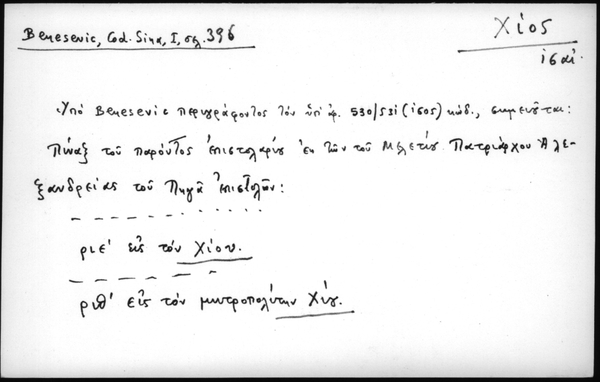 Benesevic, Cod. Sina, I, σελ. 396
Χίος
ις αἰ.
Ὑπό Benesevic περιγράφοντος τόν ὑπ' ἀρ. 530/531 (ις05) κώδ., σημειοῦται:
Πίναξ τοῦ παρόντος ἐπιστολαρίου ἐκ τῶν τοῦ Μελετίου Πατριάρχου Ἀλε-
ξανδρείας τοῦ Πηγᾶ ἐπιστολῶν:
ριε' εἰς τόν Χίου.
ριθ' εἰς τόν μητροπολίτην Χίου.